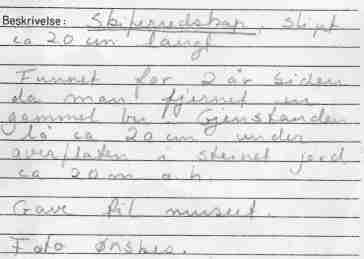 Beskrivelse: Skiferredskap, slipt
ca 20 cm langt
Funnet for 2 år siden
da man fjernet en
gammel bu. Gjenstanden
lå ca 20 cm under
overflaten i steinet jord
ca 20 m o.h.
Gave til museet.
Foto ønskes.